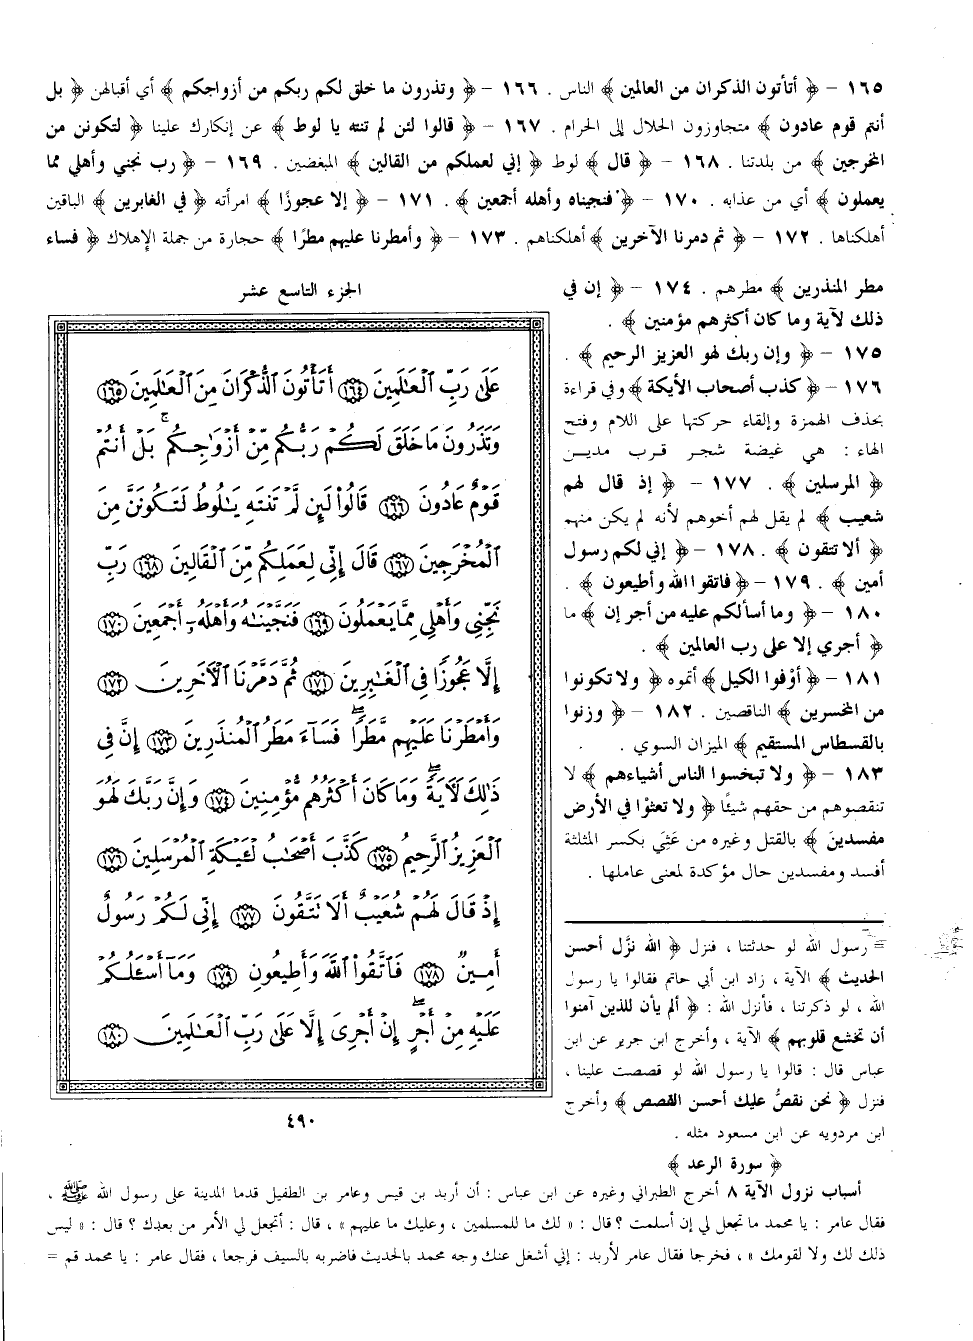 ١٦٥ - ﴿ أتأتون الذكران من العالمين ﴾ الناس . ١٦٦ - ﴿ وتذرون ما خلق لكم ربكم من أزواجكم ﴾ أي أقبالهن ﴿ بل
أنتم قوم عادون ﴾ متجاوزون الحلال إلى الحرام . ١٦٧ - ﴿ قالوا لئن لم تنته يا لوط ﴾ عن إنكارك علينا ﴿ لتكونن من
المخرجين ﴾ من بلدتنا . ١٦٨ - ﴿ قال ﴾ لوط ﴿ إني لعملكم من القالين ﴾ المبغضين . ١٦٩ - ﴿ رب نجني وأهلي مما
يعملون ﴾ أي من عذابه . ١٧٠ - ﴿ فنجيناه وأهله أجمعين ﴾ . ١٧١ - ﴿ إلا عجوزًا ﴾ امرأته ﴿ في الغابرين ﴾ الباقين
أهلكناها . ١٧٢ - ﴿ ثم دمرنا الآخرين ﴾ أهلكناهم . ١٧٣ - ﴿ وأمطرنا عليهم مطرًا ﴾ حجارة من جملة الإهلاك ﴿ فساء
مطر المنذرين ﴾ مطرهم . ١٧٤ - ﴿ إن في
ذلك لآية وما كان أكثرهم مؤمنين ﴾ .
١٧٥ - ﴿ وإن ربك لهو العزيز الرحيم ﴾ .
١٧٦ - ﴿ كذب أصحاب الأيكة ﴾ وفي قراءة
بحذف الهمزة وإلقاء حركتها على اللام وفتح
الهاء : هي غيضة شجر قرب مدين
﴿ المرسلين ﴾ . ١٧٧ - ﴿ إذ قال لهم
شعيب ﴾ لم يقل لهم أخوهم لأنه لم يكن منهم
﴿ ألا تتقون ﴾ . ١٧٨ - ﴿ إني لكم رسول
أمين ﴾ . ١٧٩ - ﴿ فاتقوا الله وأطيعون ﴾ .
١٨٠ - ﴿ وما أسألكم عليه من أجر إن ﴾ ما
﴿ أجري إلا على رب العالمين ﴾ .
١٨١ - ﴿ أوْفوا الكيل ﴾ أتموه ﴿ ولا تكونوا
من المخسرين ﴾ الناقصين . ١٨٢ - ﴿ وزنوا
بالقسطاس المستقيم ﴾ الميزان السوي .
١٨٣ - ﴿ ولا تبخسوا الناس أشياءهم ﴾ لا
تنقصوهم من حقهم شيئًا ﴿ ولا تعثوْا في الأرض
مفسدين ﴾ بالقتل وغيره من عَثِيَ بكسر المثلثة
أفسد ومفسدين حال مؤكدة لمعنى عاملها .
الجزء التاسع عشر
عَلَىٰ رَبِّ ٱلْعَـٰلَمِينَ ١٦٤ أَتَأْتُونَ ٱلذُّكْرَانَ مِنَ ٱلْعَـٰلَمِينَ ١٦٥
وَتَذَرُونَ مَا خَلَقَ لَكُمْ رَبُّكُم مِّنْ أَزْوَٰجِكُمۚ بَلْ أَنتُمْ
قَوْمٌ عَادُونَ ١٦٦ قَالُوا۟ لَئِن لَّمْ تَنتَهِ يَـٰلُوطُ لَتَكُونَنَّ مِنَ
ٱلْمُخْرَجِينَ ١٦٧ قَالَ إِنِّى لِعَمَلِكُم مِّنَ ٱلْقَالِينَ ١٦٨ رَبِّ
نَجِّنِى وَأَهْلِى مِمَّا يَعْمَلُونَ ١٦٩ فَنَجَّيْنَـٰهُ وَأَهْلَهُۥٓ أَجْمَعِينَ ١٧٠
إِلَّا عَجُوزًا فِى ٱلْغَـٰبِرِينَ ١٧١ ثُمَّ دَمَّرْنَا ٱلْـَٔاخَرِينَ ١٧٢
وَأَمْطَرْنَا عَلَيْهِم مَّطَرًاۖ فَسَآءَ مَطَرُ ٱلْمُنذَرِينَ ١٧٣ إِنَّ فِى
ذَٰلِكَ لَـَٔايَةًۖ وَمَا كَانَ أَكْثَرُهُم مُّؤْمِنِينَ ١٧٤ وَإِنَّ رَبَّكَ لَهُوَ
ٱلْعَزِيزُ ٱلرَّحِيمُ ١٧٥ كَذَّبَ أَصْحَـٰبُ لْـَٔيْكَةِ ٱلْمُرْسَلِينَ ١٧٦
إِذْ قَالَ لَهُمْ شُعَيْبٌ أَلَا تَتَّقُونَ ١٧٧ إِنِّى لَكُمْ رَسُولٌ
أَمِينٌ ١٧٨ فَٱتَّقُوا۟ ٱللَّهَ وَأَطِيعُونِ ١٧٩ وَمَآ أَسْـَٔلُكُمْ
عَلَيْهِ مِنْ أَجْرٍۖ إِنْ أَجْرِىَ إِلَّا عَلَىٰ رَبِّ ٱلْعَـٰلَمِينَ ١٨٠
٤٩٠
= رسول الله لو حدثتنا ، فنزل ﴿ الله نزَّل أحسن
الحديث ﴾ الآية ، زاد ابن أبي حاتم فقالوا يا رسول
الله ، لو ذكرتنا ، فأنزل الله : ﴿ ألم يأن للذين آمنوا
أن تخشع قلوبهم ﴾ الآية ، وأخرج ابن جرير عن ابن
عباس قال : قالوا يا رسول الله لو قصصت علينا ،
فنزل ﴿ نحن نقصُّ عليك أحسن القصص ﴾ وأخرج
ابن مردويه عن ابن مسعود مثله .
﴿ سورة الرعد ﴾
أسباب نزول الآية ٨ أخرج الطبراني وغيره عن ابن عباس : أن أربد بن قيس وعامر بن الطفيل قدما المدينة على رسول الله ﷺ ،
فقال عامر : يا محمد ما تجعل لي إن أسلمت ؟ قال : « لك ما للمسلمين ، وعليك ما عليهم » ، قال : أتجعل لي الأمر من بعدك ؟ قال : « ليس
ذلك لك ولا لقومك » ، فخرجا فقال عامر لأربد : إني أشغل عنك وجه محمد بالحديث فاضربه بالسيف فرجعا ، فقال عامر : يا محمد قم =